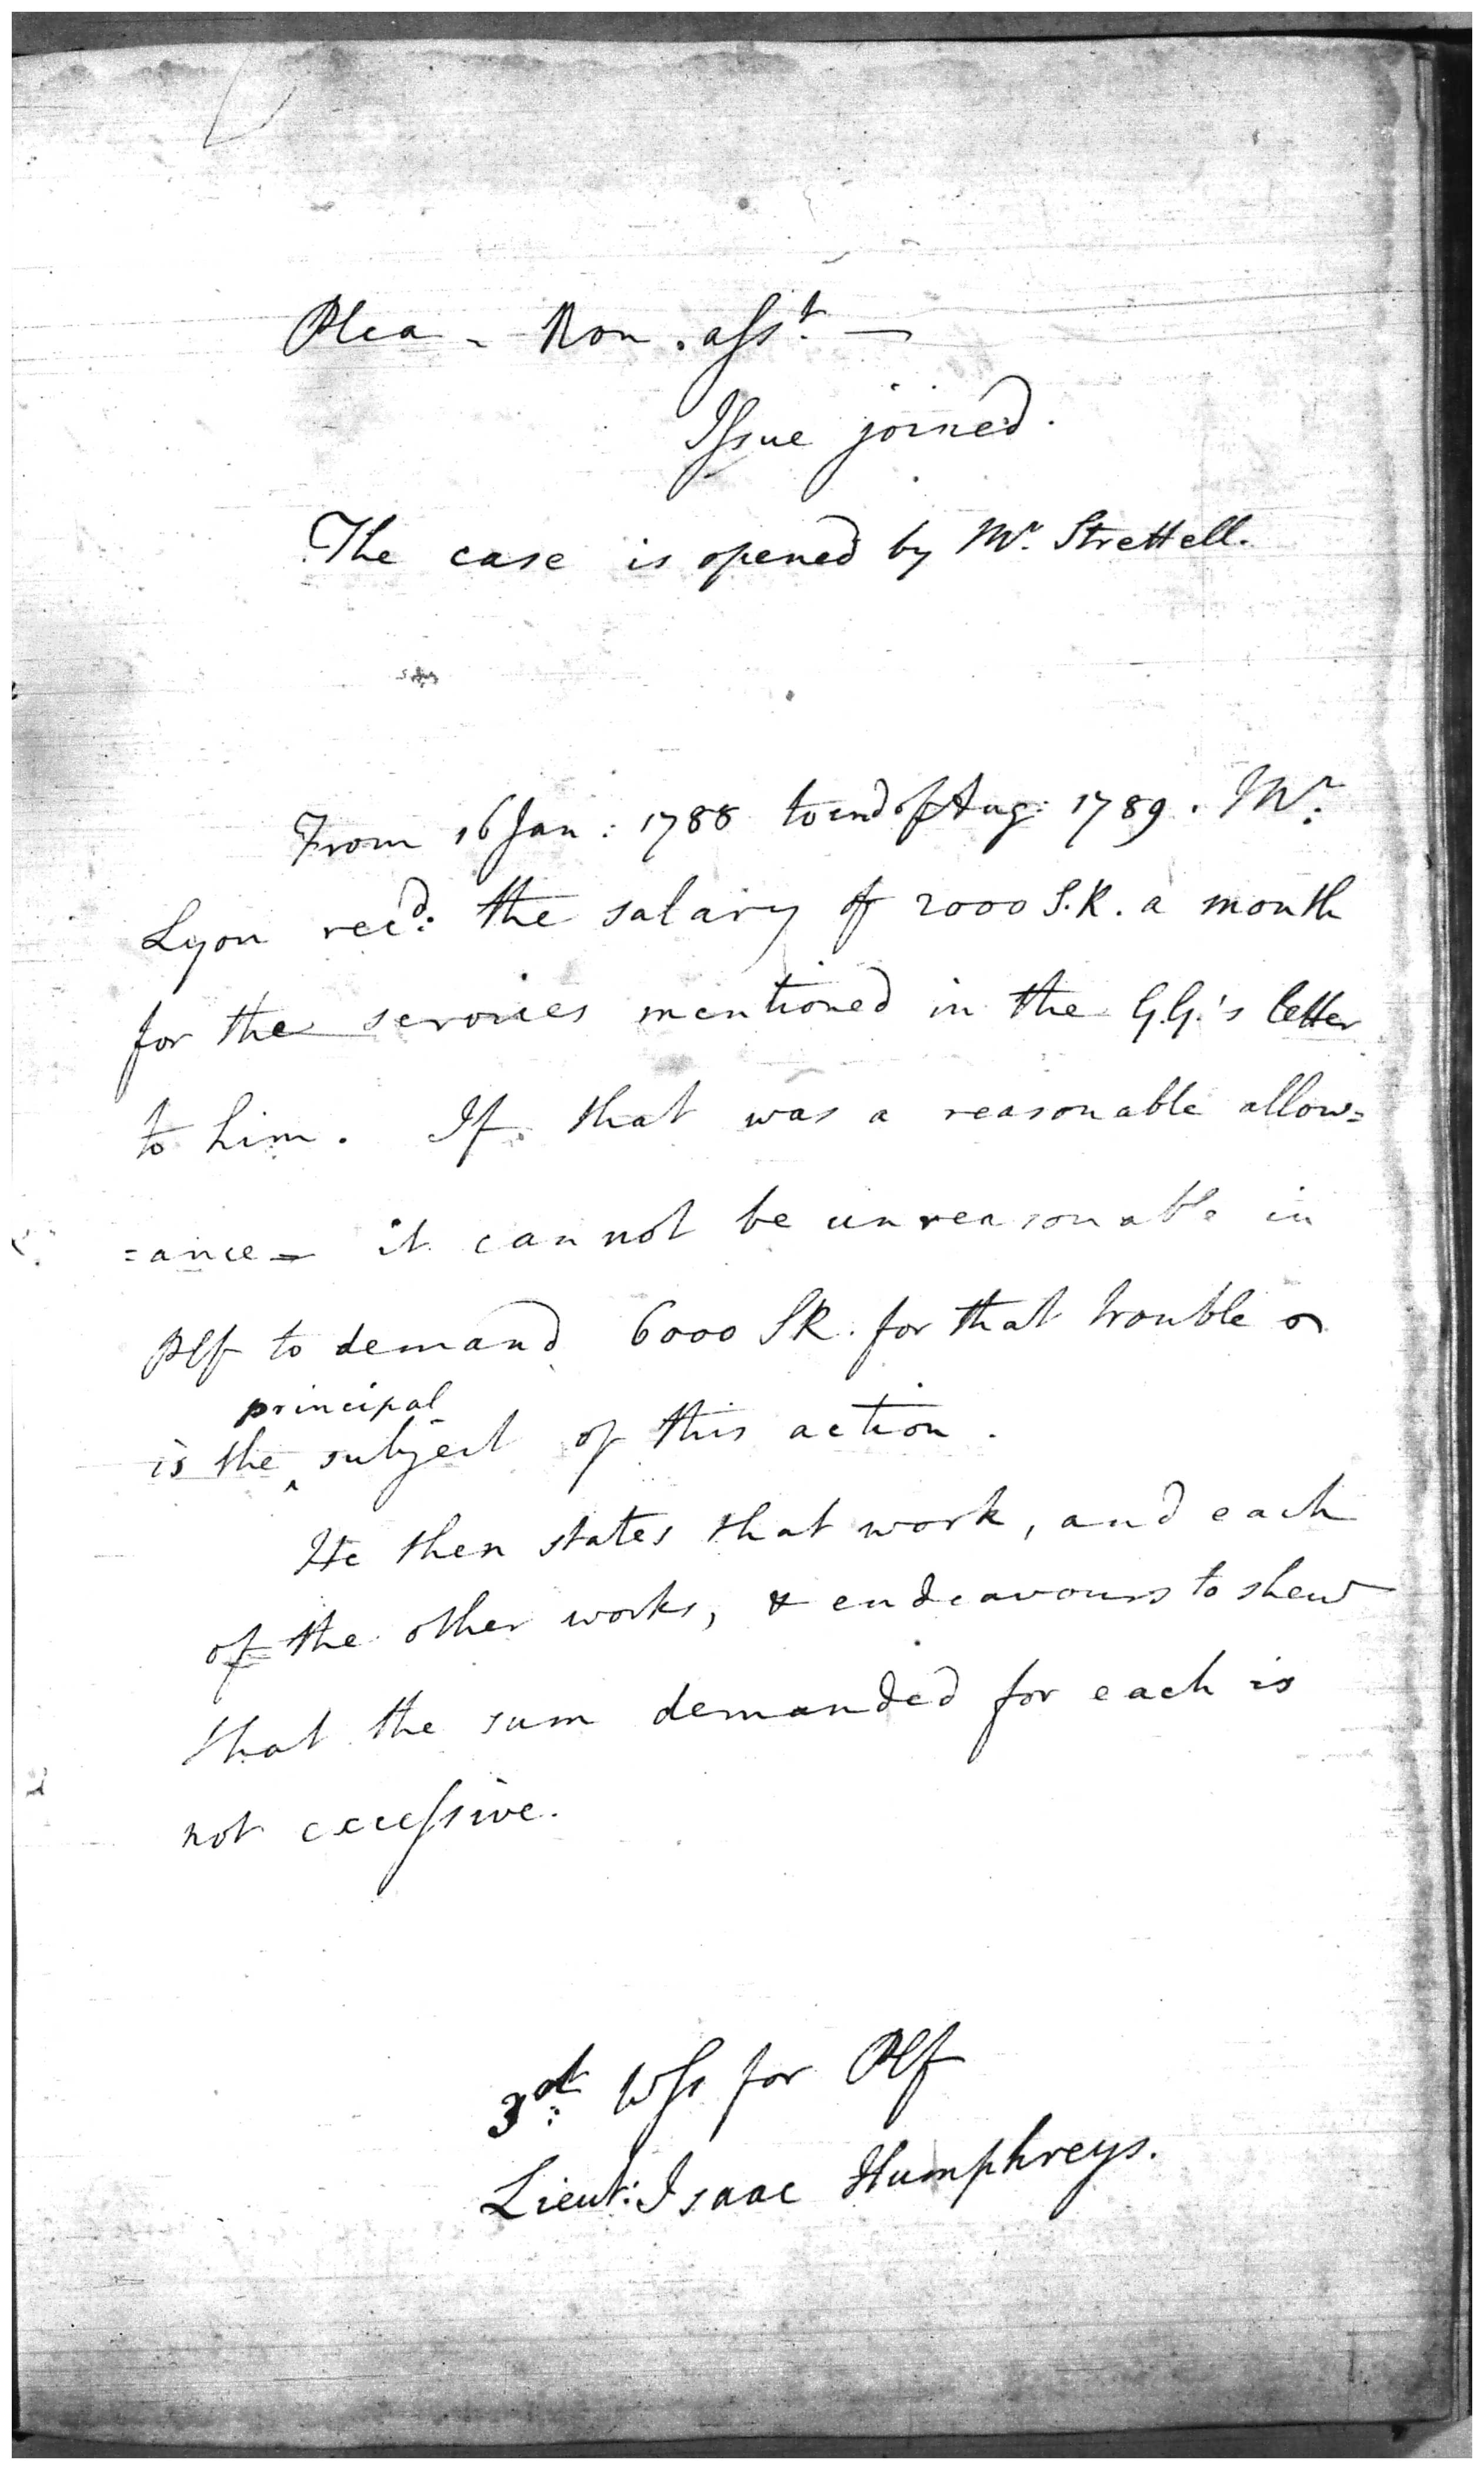 Plea - Non. asst. —
Issue joined.
The case is opened by Mr. Strettell.
From 16 Jan: 1788 to end of Aug: 1789. Mr.
Lyon recd: the salary of 2000 S.R. a month
for the services mentioned in the G.G.'s letter
to him. If that was a reasonable allow=
=ance - it cannot be unreasonable in
Plf to demand 6000 SR. for that trouble
principal
is the ‸ subject of this action.
He then states that work, and each
of the other works, & endeavours to shew
that the sum demanded for each is
not excessive.
3d: Wss for Plf
Lieut: Isaac Humphreys.